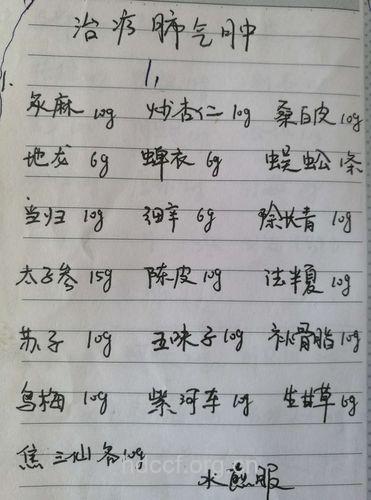 治疗肺气肿
1.
炙麻 10g 炒杏仁 10g 桑白皮 10g
地龙 6g 蝉衣 6g 蜈蚣 1条
当归 10g 细辛 6g 徐长青 10g
太子参 15g 陈皮 10g 法半夏 10g
苏子 10g 五味子 10g 补骨脂 10g
乌梅 10g 紫河车 10g 生甘草 6g
焦三仙各10g
水煎服